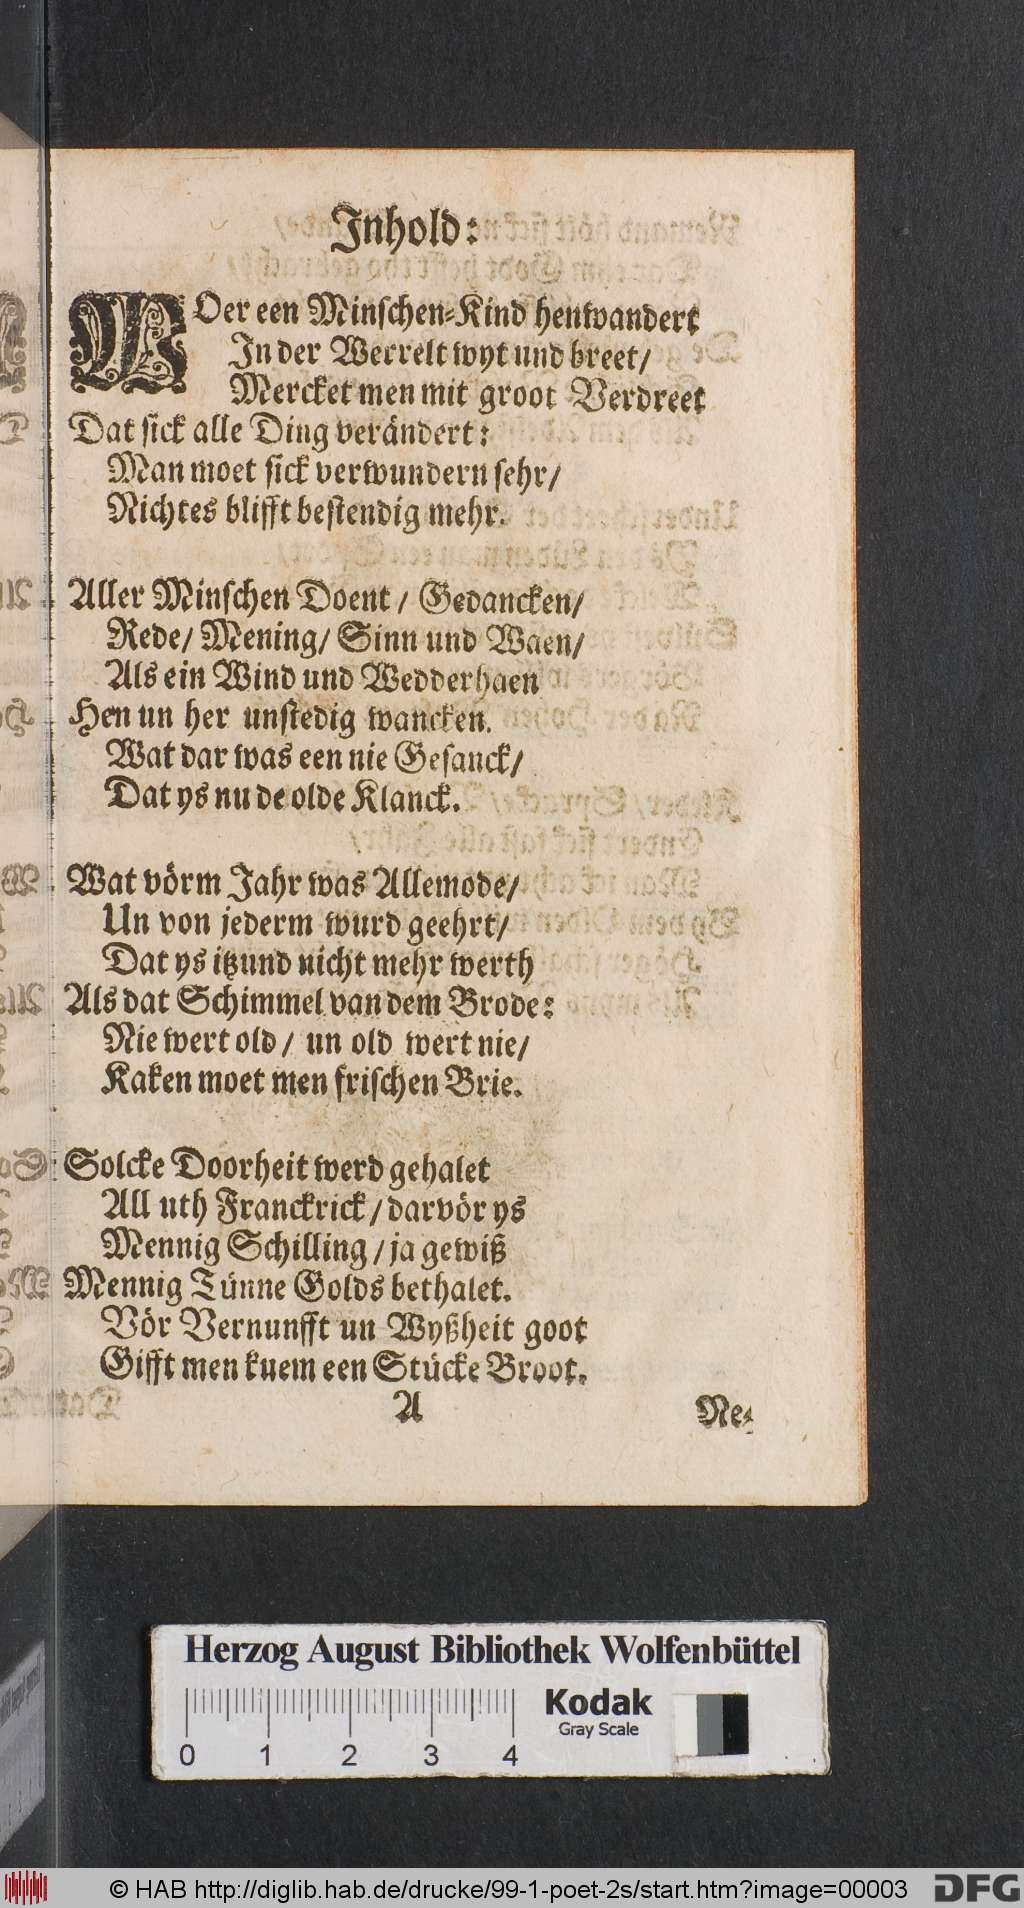 Inhold:
WOer een Minschen-Kind henwandert
In der Werrelt wyt und breet/
Mercket men mit groot Verdreet
Dat sick alle Ding verändert:
Man moet sick verwundern sehr/
Nichtes blifft bestendig mehr.
Aller Minschen Doent / Gedancken/
Rede/ Mening/ Sinn und Waen/
Als ein Wind und Wedderhaen
Hen un her unstedig wancken.
Wat dar was een nie Gesanck/
Dat ys nu de olde Klanck.
Wat vörm Jahr was Allemode/
Un von jederm wurd geehrt/
Dat ys itzund nicht mehr werth
Als dat Schimmel van dem Brode:
Nie wert old / un old wert nie/
Kaken moet men frischen Brie.
Solcke Doorheit werd gehalet
All uth Franckrick / darvör ys
Mennig Schilling / ja gewiß
Mennig Tünne Golds bethalet.
Vör Vernunfft un Wyßheit goot
Gifft men kuem een Stücke Broot.
A Ne-
Herzog August Bibliothek Wolfenbüttel
Kodak
Gray Scale
0 1 2 3 4
© HAB http://diglib.hab.de/drucke/99-1-poet-2s/start.htm?image=00003
DFG